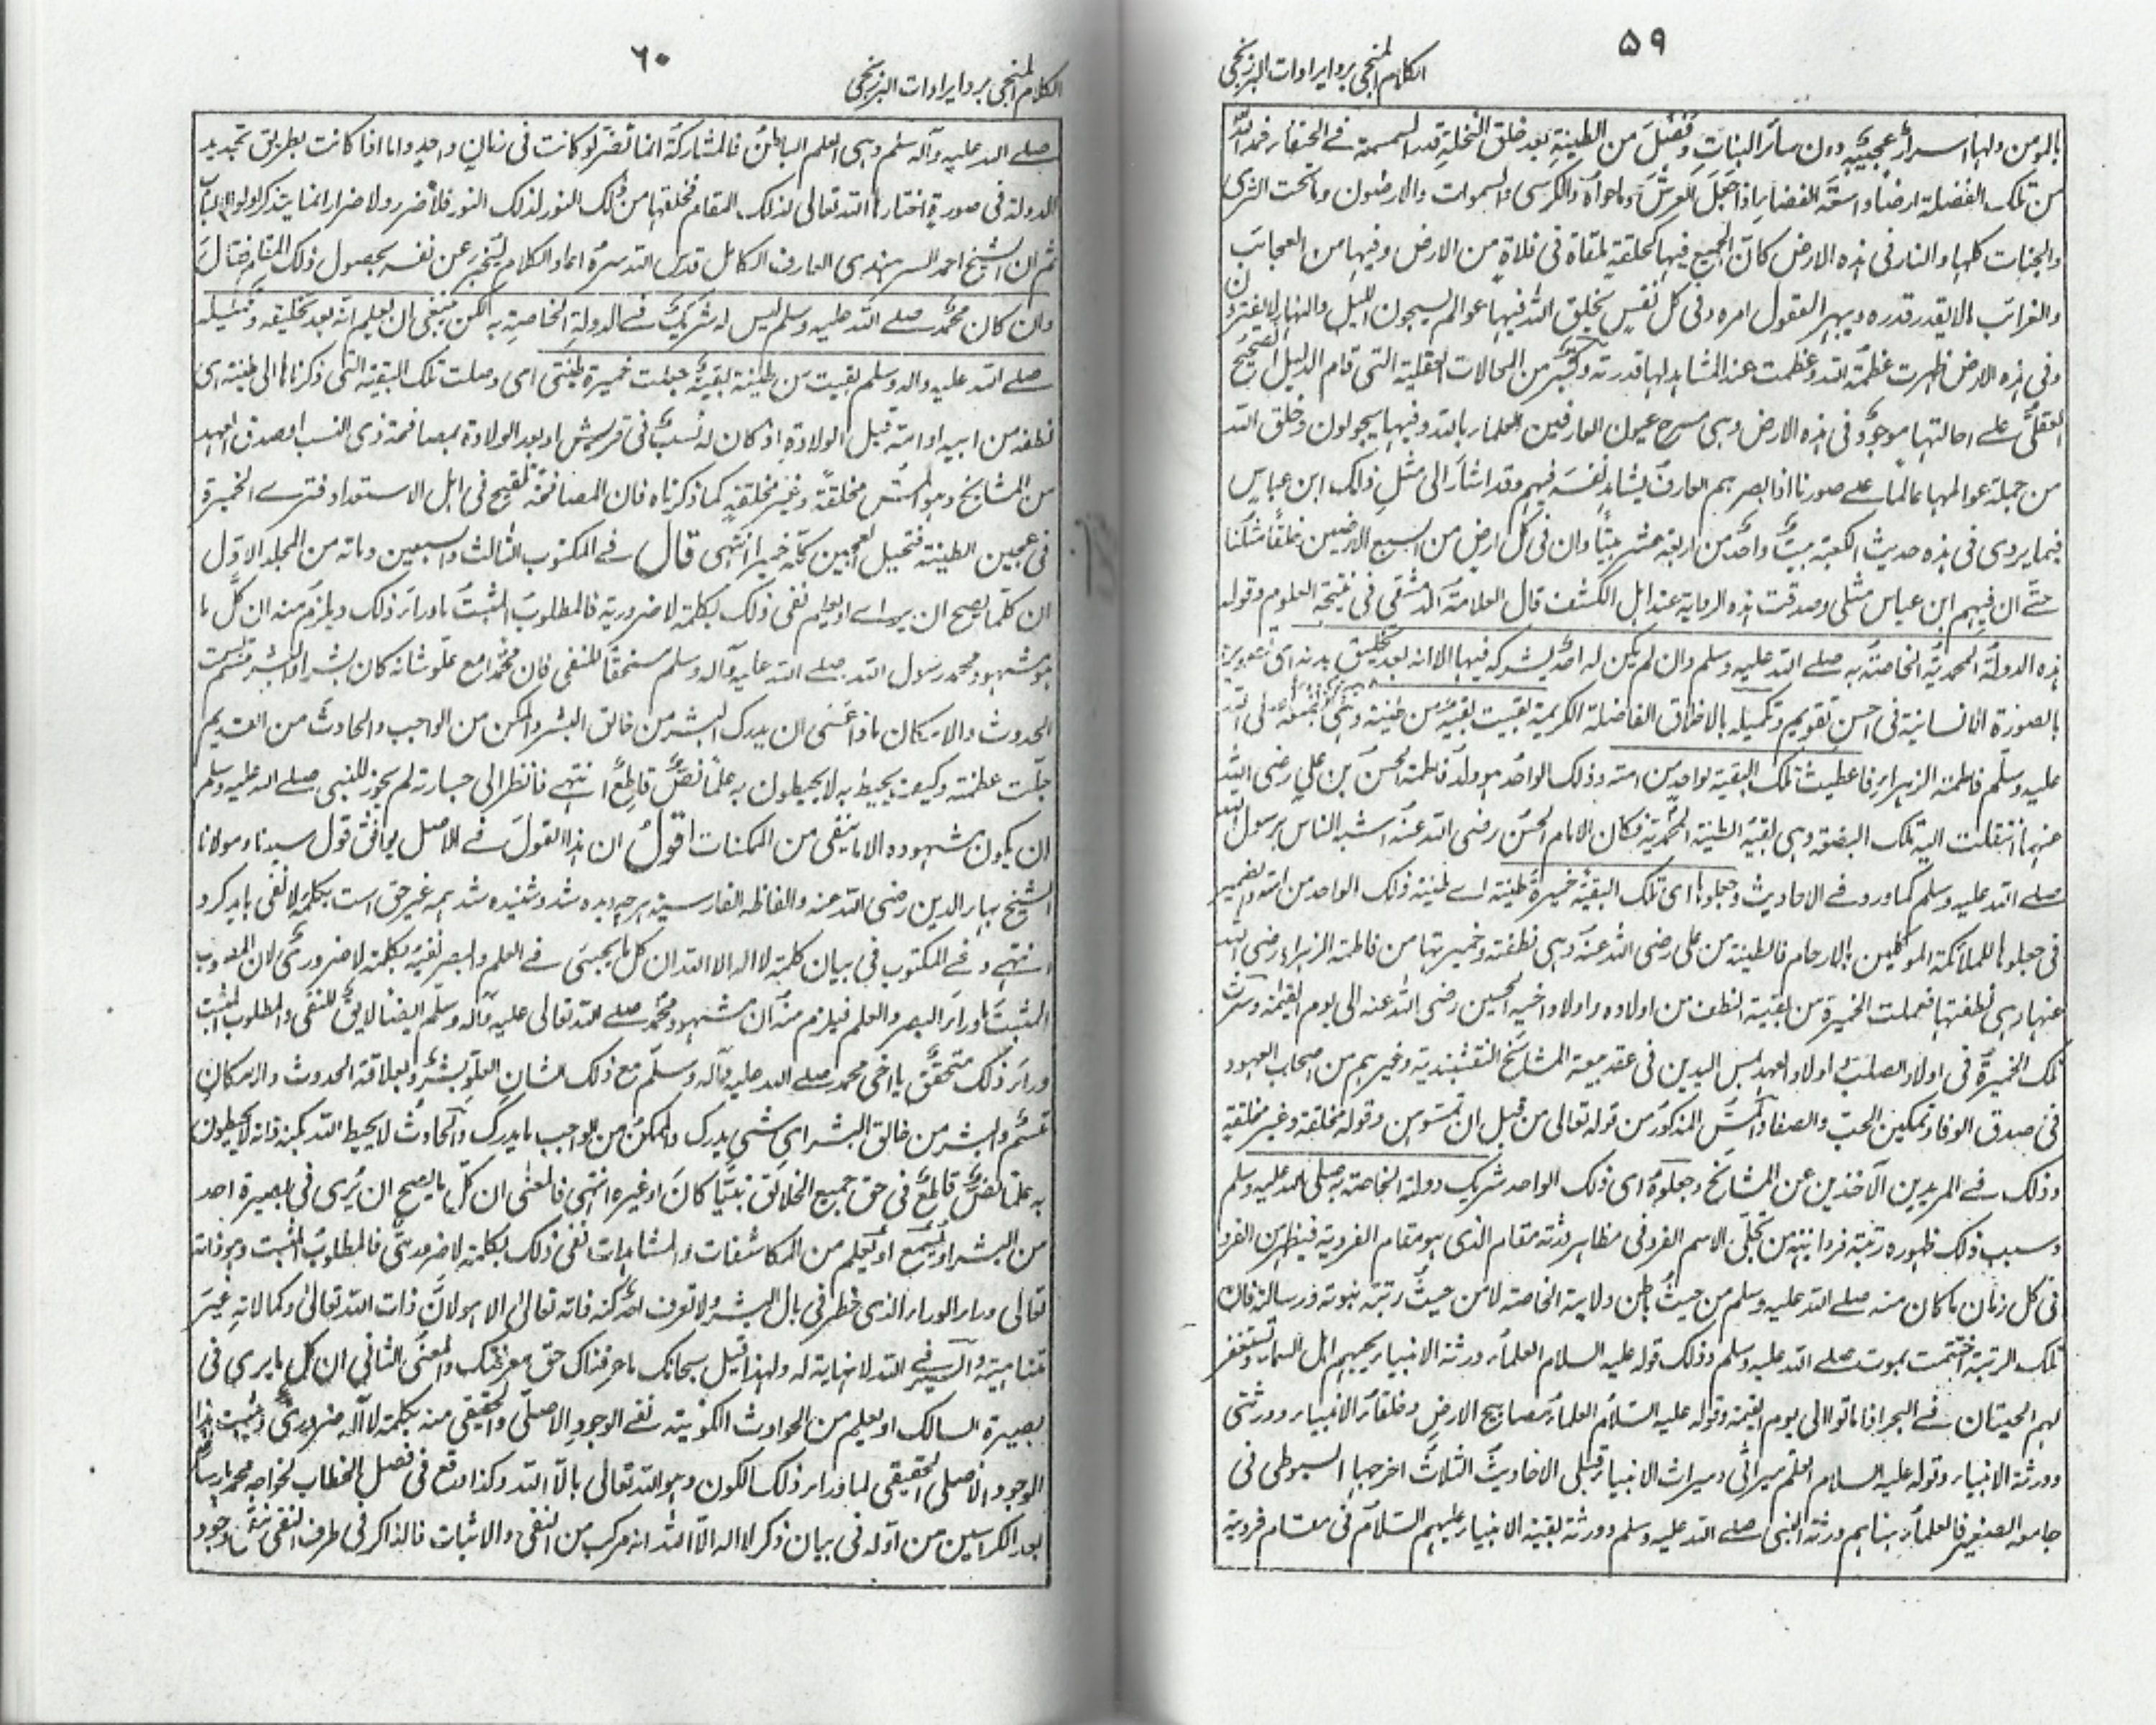 ٥٩
الكلام المنجى برد ايرادات البرزنجى
بالمومن ولها اسرار عجيبة دون سائر النبات وفضل من الطينة بعد خلق النخلة قدر السمسمة فى الخفاء فمد الله
من تلك الفضلة ارضا واسعة الفضاء اذا جعل العرش وما حواه والكرسى والسموات والارضون وما تحت الثرى
والجنات كلها والنار فى هذه الارض كان الجميع فيها كحلقة ملقاة فى فلاة من الارض وفيها من العجائب
والغرائب ما لا يقدر قدره ويبهر العقول امره وفى كل نفس يخلق الله فيها عوالم يسبحون الليل والنهار لا يفترون
وفى هذه الارض ظهرت عظمة الله وعظمت عند المشاهد لها قدرته وكثير من المحالات العقلية التى قام الدليل الصحيح
العقلى على احالتها موجود فى هذه الارض وهى مسرح عيون العارفين العلماء بالله وفيها يجولون وخلق الله
من جملة عوالمها عالما على صورنا اذا ابصرهم العارف يشاهد نفسه فيهم وقد اشار الى مثل ذلك ابن عباس
فيما يروى فى هذه حديث الكعبة بيت واحد من اربعة عشر بيتا وان فى كل ارض من السبع الارضين خلقا مثلنا
حتى ان فيهم ابن عباس مثلى وصدقت هذه الرواية عند اهل الكشف قال العلامة الدمشقى فى نتيجة العلوم وقوله
هذه الدولة المحمدية الخاصة به صلى الله عليه وسلم وان لم يكن له احد يشركه فيها الا انه بعد تخليق بدنه اى تصويره
بالصورة الانسانية فى احسن تقويم وتكميله بالاخلاق الفاضلة الكريمة بقيت بقية من طينة وهى
عليه وسلم فاطمة الزهراء فاعطيت تلك البقية لواحد من امته وذلك الواحد هو ولد فاطمة الحسن بن على رضى الله
عنهما انتقلت اليه تلك البضعة وهى بقية الطينة المحمدية فكان الامام الحسن رضى الله عنه اشبه الناس برسول الله
صلى الله عليه وسلم كما ورد فى الاحاديث وجعلوها اى تلك البقية خميرة طينة اى طينة ذلك الواحد من امته والضمير
فى جعلوها للملائكة الموكلين بالارحام فالطينة من على رضى الله عنه وهى نطفته وخميرتها من فاطمة الزهراء رضى الله
عنها وهى نطفتها فعملت الخميرة من بقية النطف من اولاده واولاد اخيه الحسين رضى الله عنه الى يوم القيمة وسرت
تلك الخميرة فى اولاد الصلب واولاد العهد بلمس اليدين فى عقد بيعة المشائخ النقشبندية وغيرهم من اصحاب العهود
فى صدق الوفا وتمكين الحب والصفا والمس المذكور من قوله تعالى من قبل ان تمسوهن وقوله مخلقة وغير مخلقة
وذلك فى المريدين الآخذين عن المشائخ وجعلوه اى ذلك الواحد شريك دولته الخاصة به صلى الله عليه وسلم
وسبب ذلك ظهوره رتبة فردانيته من تجلى الاسم الفرد فى مظاهر ورثته مقام الذى هو مقام الفردية فيظهر من الفرد
فى كل زمان ما كان منه صلى الله عليه وسلم من حيث باطن ولايته الخاصة لا من حيث رتبة نبوته ورسالته فان
تلك الرتبة اختتمت بموت صلى الله عليه وسلم وذلك قوله عليه السلام العلماء ورثة الانبياء يحبهم اهل السماء وتستغفر
لهم الحيتان فى البحر اذا ماتوا الى يوم القيمة وقوله عليه السلام العلماء مصابيح الارض وخلفاء الانبياء وورثتى
وورثة الانبياء وقوله عليه السلام العلم ميراثى وميراث الانبياء قبلى الاحاديث الثلاث اخرجها السيوطى فى
جامعه الصغير فالعلماء هنا هم ورثة النبى صلى الله عليه وسلم وورثة بقية الانبياء عليهم السلام فى مقام فردية
٦٠
الكلام المنجى برد ايرادات البرزنجى
صلى الله عليه وآله وسلم وهى العلم الباطن فالمشاركة انما تضر لو كانت فى زمان واحد واما اذا كانت بطريق تجديد
الدولة فى صورة اختارها الله تعالى لذلك المقام فخلقها من ذلك النور لذلك النور فلا ضرر ولا ضرار انما يتذكر اولوا الالباب
ثم ان الشيخ احمد السرهندى العارف الكامل قدس الله سره اعاد الكلام ليخبر عن نفسه بحصول ذلك المقام فقال
وان كان محمد صلى الله عليه وسلم ليس له شريك فى الدولة الخاصة به لكن ينبغى ان يعلم انه بعد تخليقه وتكميله
صلى الله عليه واله وسلم بقيت من طينة بقية جعلت خميرة طينتى اى وصلت تلك البقية التى ذكرناها الى طينته اى
نطفه من ابيه او امه قبل الولادة اذ كان له نسب فى قريش او بعد الولادة بمصافحة ذى النسب او صدق العهد
من المشائخ وهو المس مخلقة وغير مخلقة كما ذكرناه فان المصافحة تلقيح فى اهل الاستعداد فترى الخميرة
فى عجين الطينة فتحيل العجين كله خميرا انتهى قال فى المكتوب الثالث والسبعين ومائة من المجلد الاول
ان كلما يصح ان يرى او يعلم نفى ذلك بكلمة لا ضرورية فالمطلوب المثبت ما وراء ذلك ويلزم منه ان كل ما
هو مشهود محمد رسول الله صلى الله عليه وآله وسلم مستحقا للنفى فان محمدا مع علو شانه كان بشرا والبشر متسم بسمت
الحدوث والامكان ماذا عسى ان يدرك البشر من خالق البشر والممكن من الواجب والحادث من القديم
جلت عظمته وكيف يحيط به لا يحيطون به علما نص قاطع انتهى فانظر الى جسارته لم يجوز للنبى صلى الله عليه وسلم
ان يكون شهوده الا ما ينفى من الممكنات اقول ان هذا القول فى الاصل يوافق قول سيدنا ومولانا
الشيخ بهاء الدين رضى الله عنه والفاظه الفارسية هرچه ديده شد وشنيده شد همه غير حق است بكلمه لا نفى بايد كرد
انتهى وفى المكتوب فى بيان كلمة لا اله الا الله ان كل ما يجيئ فى العلم والبصر نفيه بكلمة لا ضرورى لان المطلوب
المثبت ما وراء البصر والعلم فيلزم منه ان مشهود محمد صلى الله تعالى عليه وآله وسلم ايضا لايق للنفى والمطلوب المثبت
وراء ذلك متحقق يا اخى محمد صلى الله عليه وآله وسلم مع ذلك الشان العلو بشر وبعلاقة الحدوث والامكان
متسم والبشر من خالق البشر اى شئ يدرك والممكن من الواجب ما يدرك والحادث لا يحيط الله بكنه ذاته لا يحيطون
به علما نص قاطع فى حق جميع الخلائق نبيا كان او غيره انتهى فالمعنى ان كل ما يصح ان يرى فى بصيرة احد
من البشر او يسمع او يعلم من المكاشفات والمشاهدات نفى ذلك بكلمة لا ضرورى فالمطلوب المثبت وهو ذاته
تعالى وراء الوراء الذى خطر فى بال البشر ولا تعرف احد كنه ذاته تعالى الا هو لان ذات الله تعالى وكمالاته غير
متناهية والسير فى الله لا نهاية له ولهذا قيل سبحانك ما عرفناك حق معرفتك والمعنى الثانى ان كل ما يرى فى
بصيرة السالك او يعلم من الحوادث الكونية نفى الوجود الاصلى والحقيقى منه بكلمة لا اله ضرورى ويثبت هذا
الوجود الاصلى الحقيقى لما وراء ذلك الكون وهو الله تعالى بالا الله وكذا وقع فى فصل الخطاب لخواجه محمد پارسا
بعد الكراسين من اوله فى بيان ذكر لا اله الا الله انه مركب من النفى والاثبات فالذاكر فى طرف النفى ينفى وجود